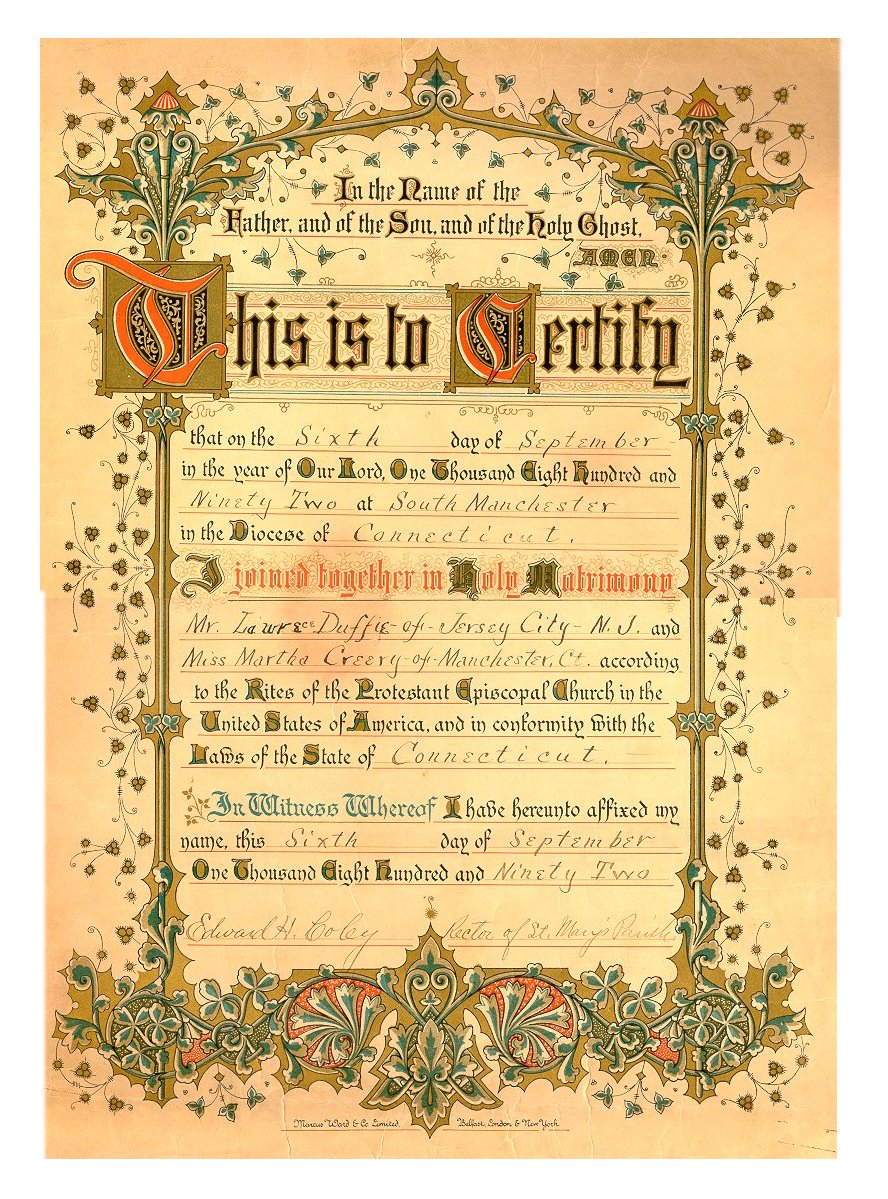 In the Name of the
Father, and of the Son, and of the Holy Ghost,
AMEN
This is to Certify
that on the Sixth day of September
in the year of Our Lord, One Thousand Eight Hundred and
Ninety Two at South Manchester
in the Diocese of Connecticut.
I joined together in Holy Matrimony
Mr. Lawrece Duffie - of - Jersey City - N. J. and
Miss Martha Creery - of - Manchester, Ct. according
to the Rites of the Protestant Episcopal Church in the
United States of America, and in conformity with the
Laws of the State of Connecticut.
In Witness Whereof I have hereunto affixed my
name, this Sixth day of September
One Thousand Eight Hundred and Ninety Two
Edward H. Coley Rector of St. Mary's Parish
Marcus Ward & Co Limited, Belfast, London & New York